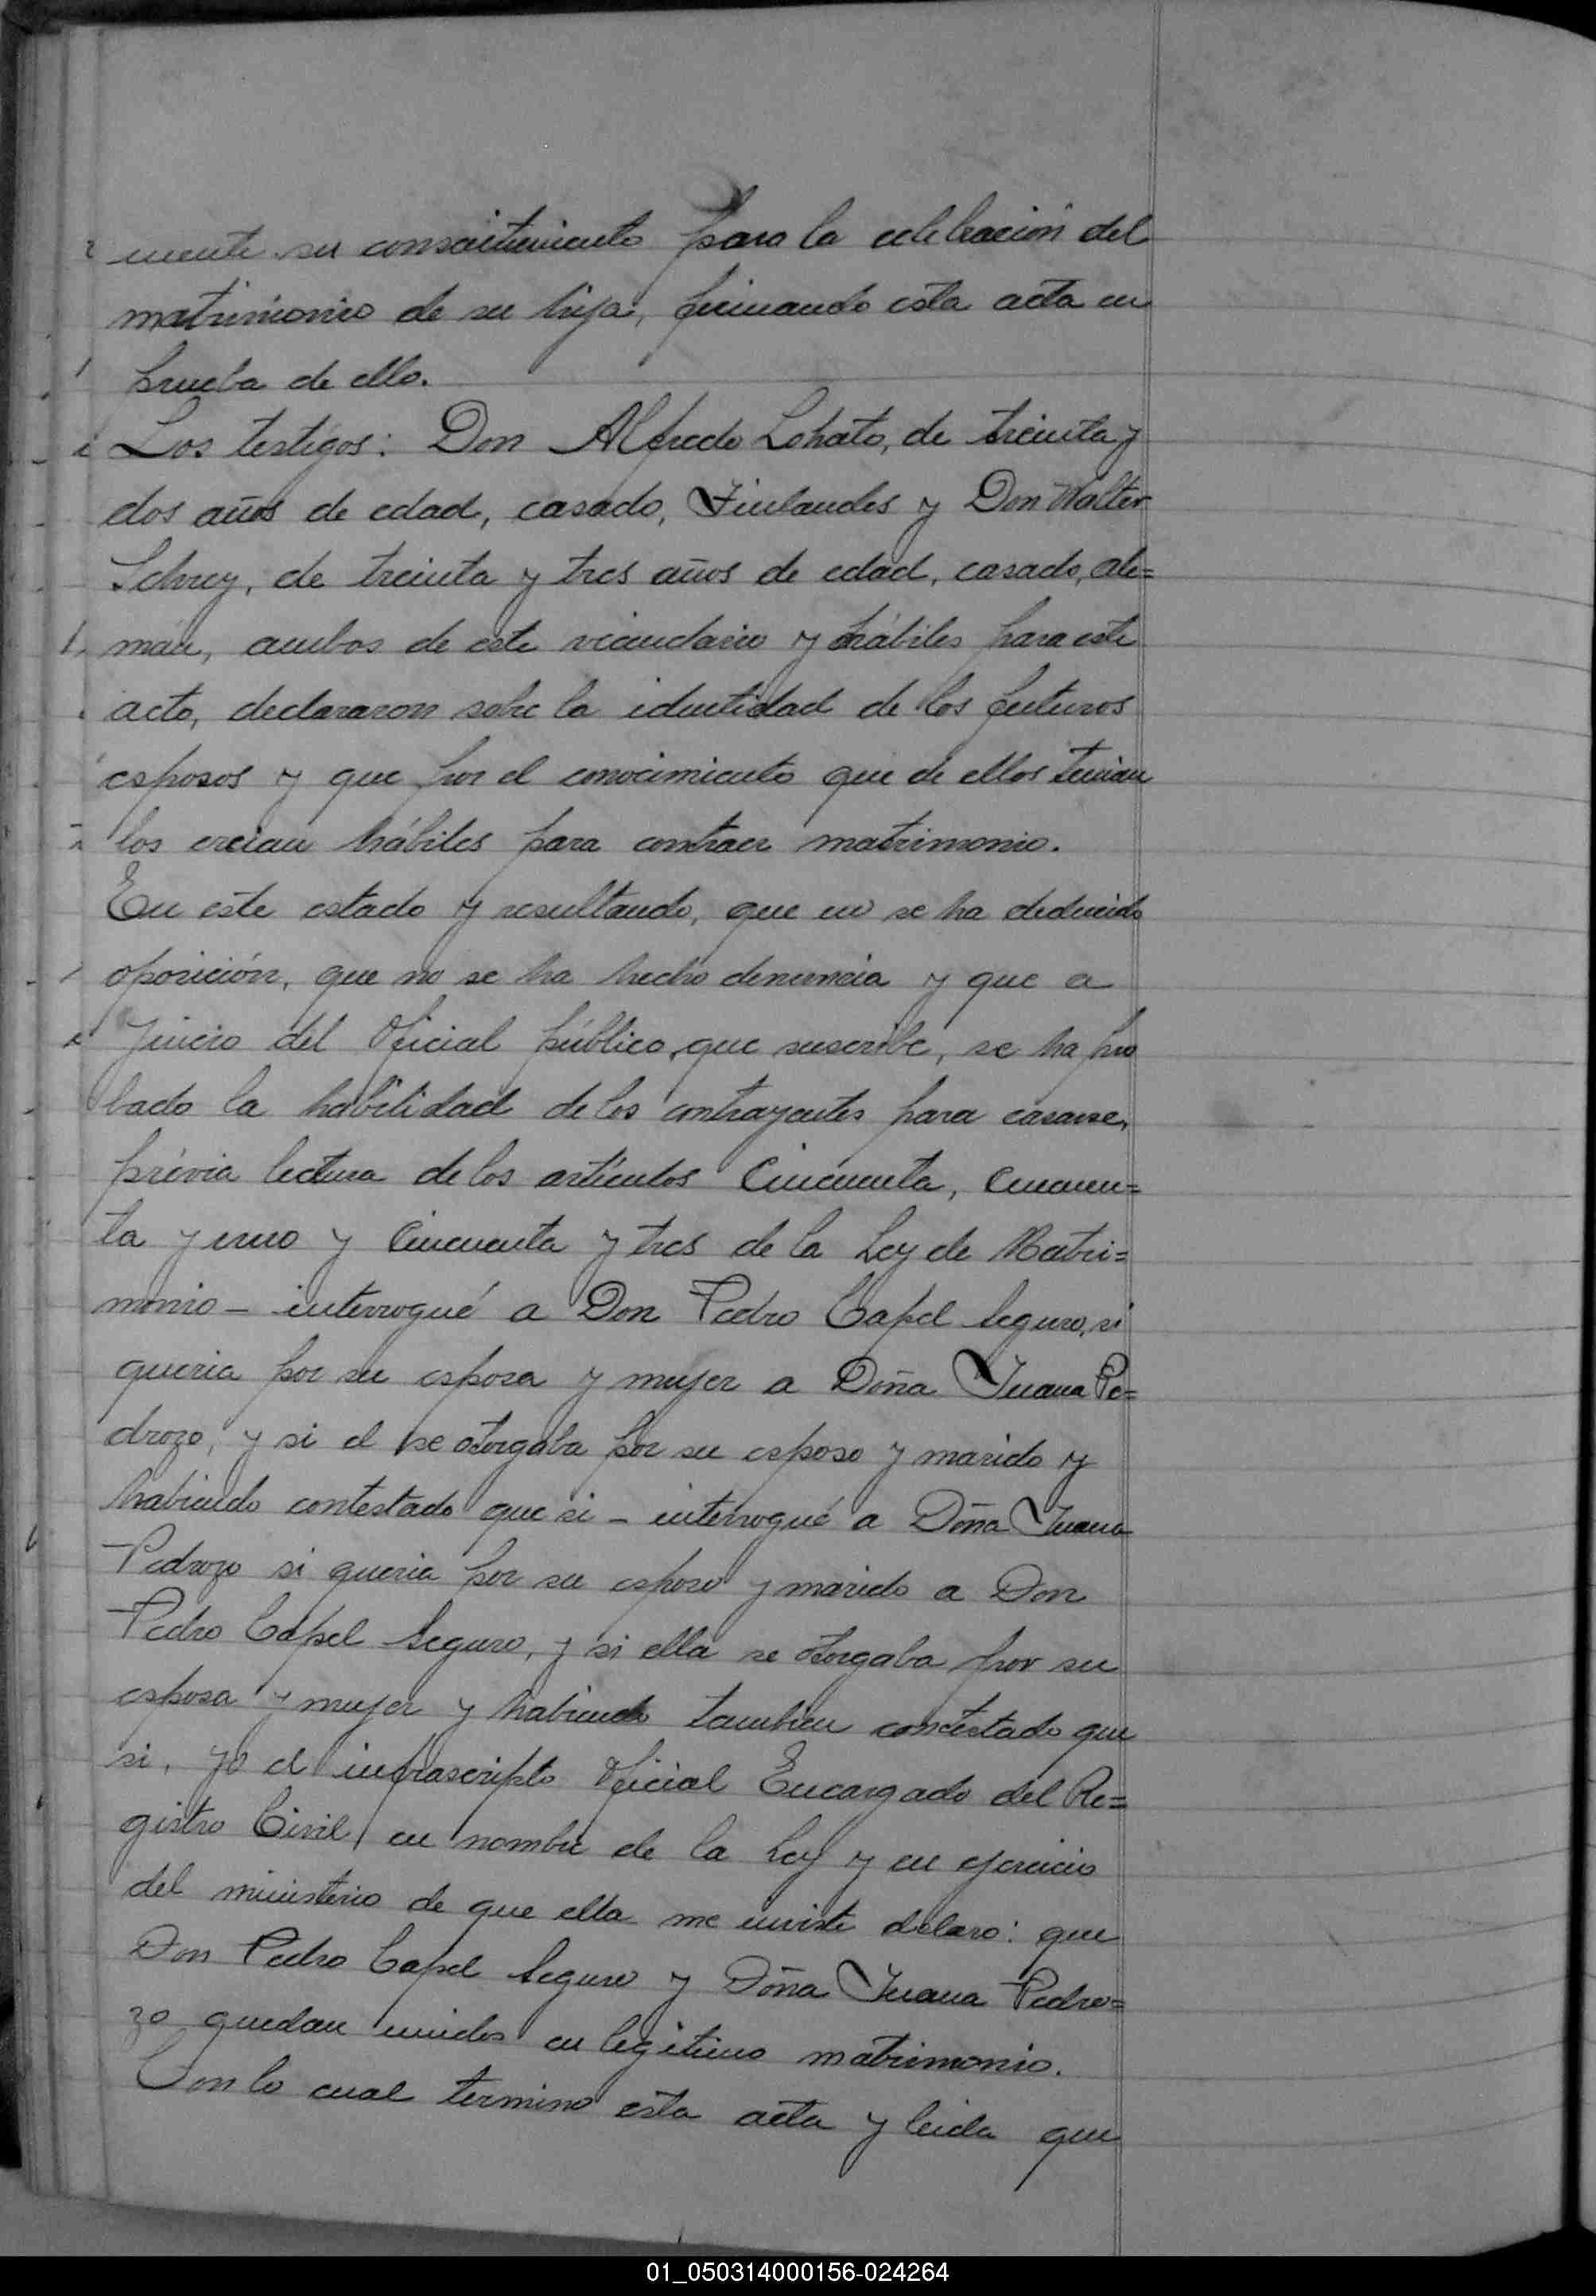 mente su consentimiento para la celebración del
matrimonio de su hija, firmando esta acta en
prueba de ello.
Los testigos: Don Alfredo Lohato, de treinta y
dos años de edad, casado, Finlandes y Don Walter
Schrey, de treinta y tres años de edad, casado, ale=
mán, ambos de este vecindario y hábiles para este
acto, declararon sobre la identidad de los futuros
esposos y que por el conocimiento que de ellos tenian
los creian hábiles para contraer matrimonio.
En este estado y resultando, que no se ha deducido
oposición, que no se ha hecho denuncia y que a
juicio del Oficial público, que suscribe, se ha pro
bado la habilidad de los contrayentes para casarse,
prévia lectura de los artículos Cincuenta, Cincuen=
ta y uno y Cincuenta y tres de la Ley de Matri=
monio - interrogué a Don Pedro Capel Seguro, si
queria por su esposa y mujer a Doña Juana Pe=
drozo, y si el se otorgaba por su esposo y marido y
habiendo contestado que si - interrogué a Doña Juana
Pedrozo si queria por su esposo y marido a Don
Pedro Capel Seguro, y si ella se otorgaba por su
esposa y mujer y habiendo tambien contestado que
si, yo el infrascripto Oficial Encargado del Re=
gistro Civil en nombre de la Ley y en ejercicio
del ministerio de que ella me inviste delaro: que
Don Pedro Capel Seguro y Doña Juana Pedro=
zo quedan unidos en legitimo matrimonio.
Con lo cual termino esta acta y leida que
01_050314000156-024264